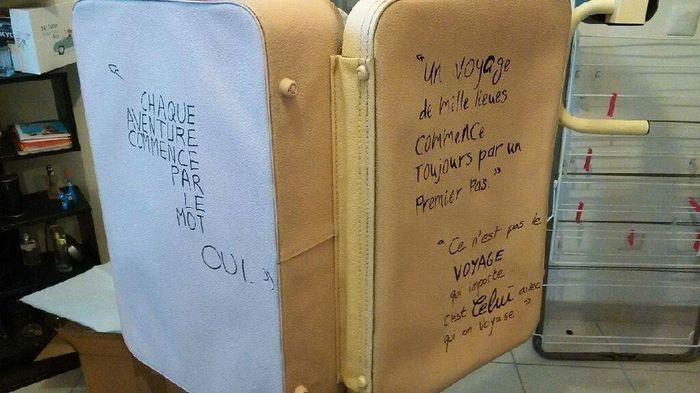 "
CHAQUE
AVENTURE
COMMENCE
PAR
LE
MOT
OUI. "
"UN VOYAGE
de mille lieues
COMMENCE
Toujours par un
Premier Pas. "
" Ce n'est pas le
VOYAGE
qui importe
c'est Celui avec
qui on voyage "